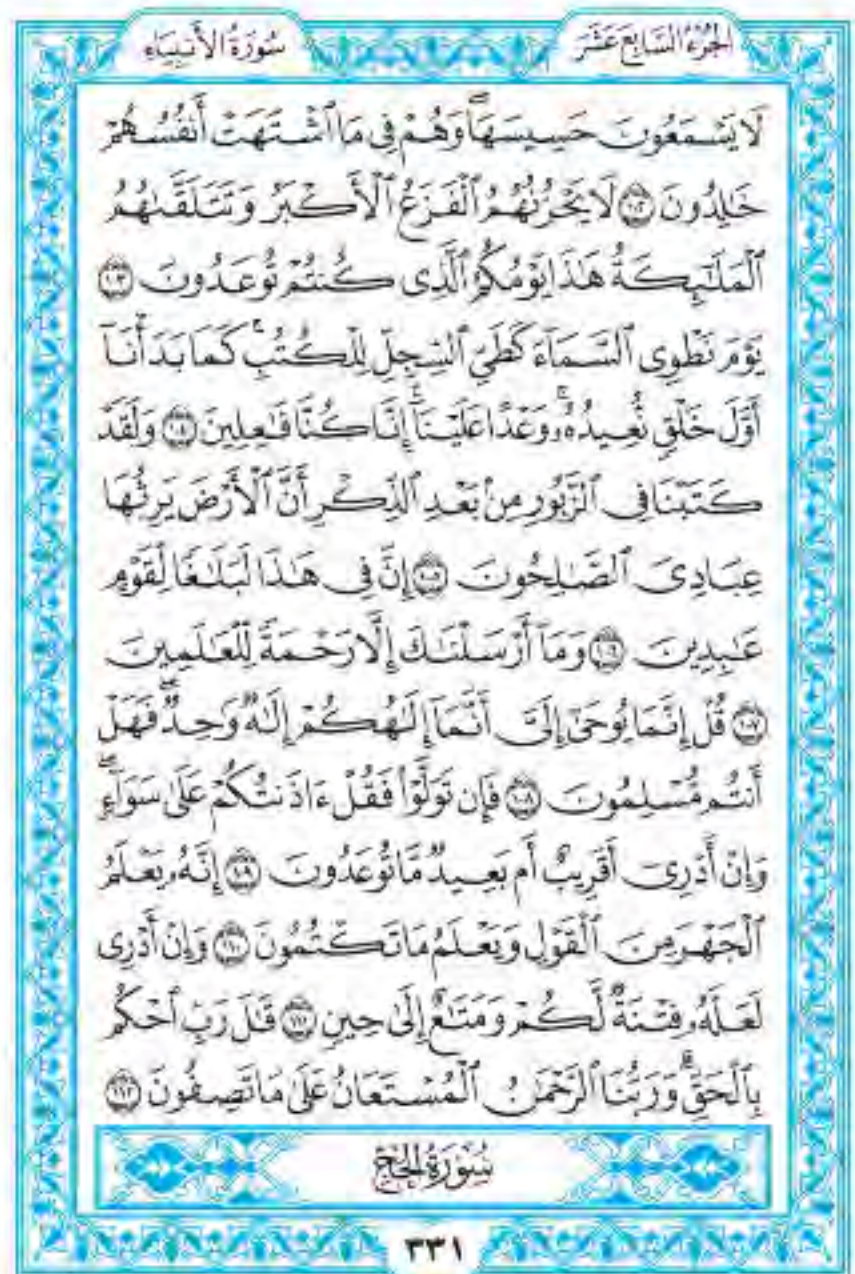 الجزء السابع عشر
سورة الأنبياء
لَا يَسْمَعُونَ حَسِيسَهَا ۖ وَهُمْ فِي مَا ٱشْتَهَتْ أَنفُسُهُمْ
خَٰلِدُونَ ١٠٢ لَا يَحْزُنُهُمُ ٱلْفَزَعُ ٱلْأَكْبَرُ وَتَتَلَقَّىٰهُمُ
ٱلْمَلَٰٓئِكَةُ هَٰذَا يَوْمُكُمُ ٱلَّذِى كُنتُمْ تُوعَدُونَ ١٠٣
يَوْمَ نَطْوِى ٱلسَّمَآءَ كَطَىِّ ٱلسِّجِلِّ لِلْكُتُبِ ۚ كَمَا بَدَأْنَآ
أَوَّلَ خَلْقٍ نُّعِيدُهُۥ ۚ وَعْدًا عَلَيْنَآ ۚ إِنَّا كُنَّا فَٰعِلِينَ ١٠٤ وَلَقَدْ
كَتَبْنَا فِى ٱلزَّبُورِ مِنۢ بَعْدِ ٱلذِّكْرِ أَنَّ ٱلْأَرْضَ يَرِثُهَا
عِبَادِىَ ٱلصَّٰلِحُونَ ١٠٥ إِنَّ فِى هَٰذَا لَبَلَٰغًا لِّقَوْمٍ
عَٰبِدِينَ ١٠٦ وَمَآ أَرْسَلْنَٰكَ إِلَّا رَحْمَةً لِّلْعَٰلَمِينَ
١٠٧ قُلْ إِنَّمَا يُوحَىٰٓ إِلَىَّ أَنَّمَآ إِلَٰهُكُمْ إِلَٰهٌ وَٰحِدٌ ۖ فَهَلْ
أَنتُم مُّسْلِمُونَ ١٠٨ فَإِن تَوَلَّوْا۟ فَقُلْ ءَاذَنتُكُمْ عَلَىٰ سَوَآءٍ ۖ
وَإِنْ أَدْرِىٓ أَقَرِيبٌ أَم بَعِيدٌ مَّا تُوعَدُونَ ١٠٩ إِنَّهُۥ يَعْلَمُ
ٱلْجَهْرَ مِنَ ٱلْقَوْلِ وَيَعْلَمُ مَا تَكْتُمُونَ ١١٠ وَإِنْ أَدْرِى
لَعَلَّهُۥ فِتْنَةٌ لَّكُمْ وَمَتَٰعٌ إِلَىٰ حِينٍ ١١١ قَٰلَ رَبِّ ٱحْكُم
بِٱلْحَقِّ ۗ وَرَبُّنَا ٱلرَّحْمَٰنُ ٱلْمُسْتَعَانُ عَلَىٰ مَا تَصِفُونَ ١١٢
سورة الحج
٣٣١